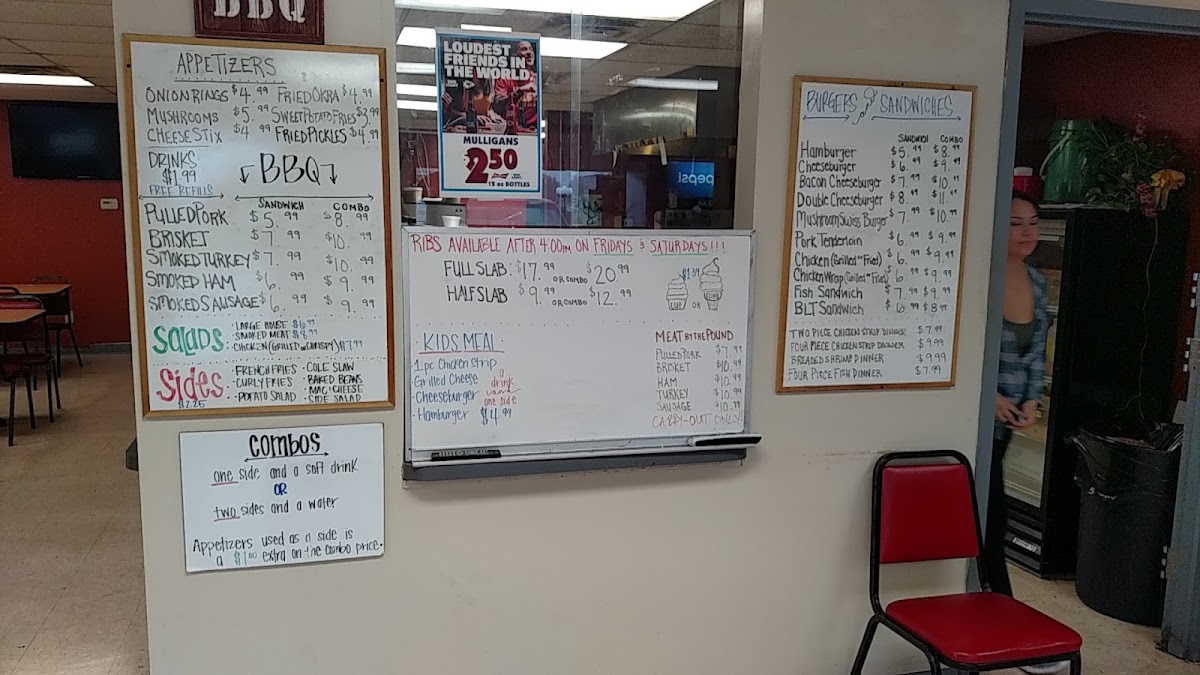 BBQ
APPETIZERS
ONION RINGS $4.99 FRIED OKRA $4.99
MUSHROOMS $5.99 SWEET POTATO FRIES $3.99
CHEESE STIX $4.99 FRIED PICKLES $4.99
DRINKS:
$1.99
FREE REFILLS
BBQ
SANDWICH COMBO
PULLED PORK $5.99 $8.99
BRISKET $7.99 $10.99
SMOKED TURKEY $7.99 $10.99
SMOKED HAM $6.99 $9.99
SMOKED SAUSAGE $6.99 $9.99
SALADS
· LARGE HOUSE $6.99
· SMOKED MEAT $8.99
· CHICKEN (GRILLED or CRISPY) $7.99
Sides
$2.25
· FRENCH FRIES · COLE SLAW
· CURLY FRIES · BAKED BEANS
· POTATO SALAD · MAC'CHEESE
· SIDE SALAD
COMBOS
one side and a soft drink
OR
two sides and a water
Appetizers used as a side is
a $1.00 extra on the combo price.
LOUDEST
FRIENDS
IN THE
WORLD
MULLIGANS
$2.50
12 oz BOTTLES
pepsi
RIBS AVAILABLE AFTER 4:00PM ON FRIDAYS & SATURDAYS!!!
FULL SLAB: $17.99 OR COMBO $20.99
HALF SLAB $9.99 OR COMBO $12.99
$1.39
CUP OR CONE
KIDS MEAL
· 1 pc Chicken Strip
· Grilled Cheese
· Cheeseburger
· Hamburger $4.99
drink
and
one side
MEAT BY THE POUND
PULLED PORK $7.99
BRISKET $10.99
HAM $10.99
TURKEY $10.99
SAUSAGE $10.99
CARRY-OUT ONLY
BURGERS & SANDWICHES
SANDWICH COMBO
Hamburger $5.99 $8.99
Cheeseburger $6.99 $9.99
Bacon Cheeseburger $7.99 $10.99
Double Cheeseburger $8.99 $11.99
Mushroom Swiss Burger $7.99 $10.99
Pork Tenderloin $6.99 $9.99
Chicken (Grilled or Fried) $6.99 $9.99
Chicken Wrap (Grilled or Fried) $6.99 $9.99
Fish Sandwich $7.99 $9.99
BLT Sandwich $6.99 $8.99
TWO PIECE CHICKEN STRIP DINNER $7.99
FOUR PIECE CHICKEN STRIP DINNER $9.99
BREADED SHRIMP DINNER $9.99
FOUR PIECE FISH DINNER $7.99